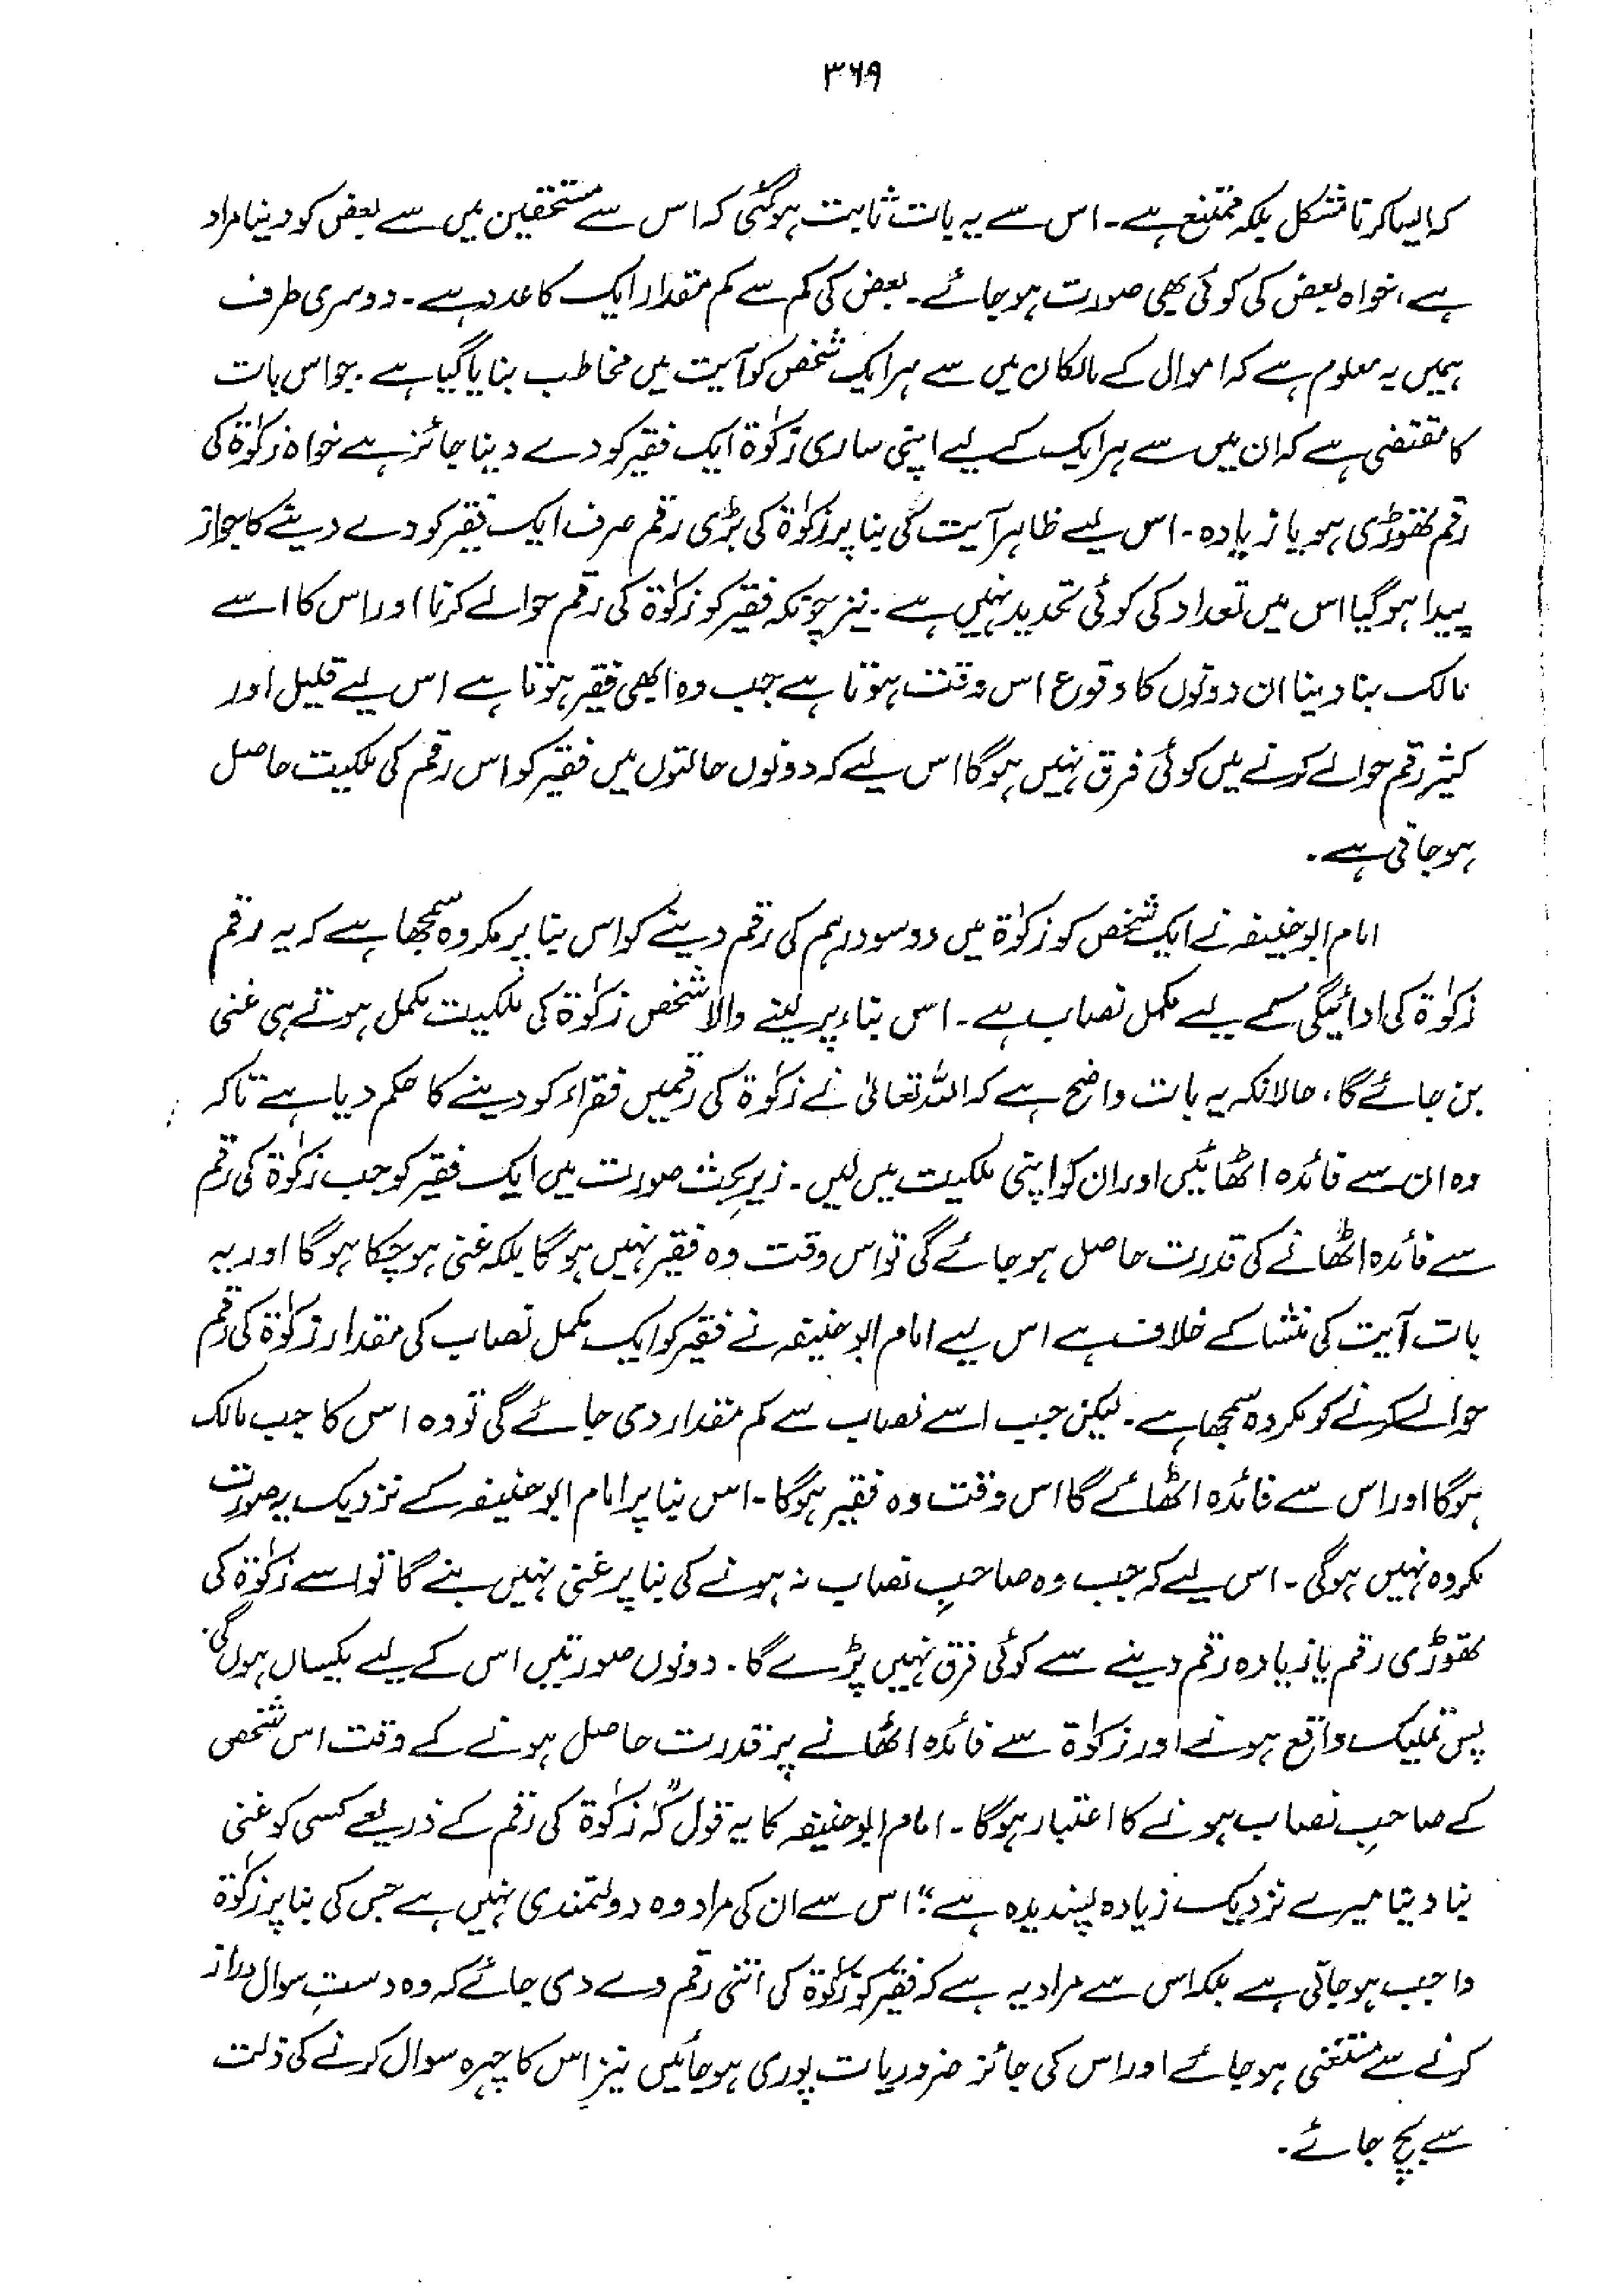 ۳۶۹
کہ ایسا کرنا مشکل بلکہ ممتنع ہے۔ اس سے یہ بات ثابت ہوگئی کہ اس سے مستحقین میں سے بعض کو دینا مراد
ہے، خواہ بعض کی کوئی بھی صورت ہو جائے۔ بعض کی کم سے کم مقدار ایک کا عدد ہے۔ دوسری طرف
ہمیں یہ معلوم ہے کہ اموال کے مالکان میں سے ہر ایک شخص کو آیت میں مخاطب بنایا گیا ہے۔ جو اس بات
کا مقتضی ہے کہ ان میں سے ہر ایک کے لیے اپنی ساری زکوٰۃ ایک فقیر کو دے دینا جائز ہے خواہ زکوٰۃ کی
رقم تھوڑی ہو یا زیادہ۔ اس لیے ظاہر آیت کی بنا پر زکوٰۃ کی بڑی رقم صرف ایک فقیر کو دے دینے کا جواز
پیدا ہوگیا اس میں تعداد کی کوئی تحدید نہیں ہے۔ نیز چونکہ فقیر کو زکوٰۃ کی رقم حوالے کرنا اور اس کا اسے
مالک بنا دینا ان دونوں کا وقوع اس وقت ہوتا ہے جب وہ ابھی فقیر ہوتا ہے اس لیے قلیل اور
کثیر رقم حوالے کرنے میں کوئی فرق نہیں ہوگا اس لیے کہ دونوں حالتوں میں فقیر کو اس رقم کی ملکیت حاصل
ہو جاتی ہے۔
امام ابو حنیفہ نے ایک شخص کو زکوٰۃ میں دو سو درہم کی رقم دینے کو اس بنا پر مکروہ سمجھا ہے کہ یہ رقم
زکوٰۃ کی ادائیگی کے لیے مکمل نصاب ہے۔ اس بناء پر لینے والا شخص زکوٰۃ کی ملکیت مکمل ہوتے ہی غنی
بن جائے گا، حالانکہ یہ بات واضح ہے کہ اللہ تعالیٰ نے زکوٰۃ کی رقمیں فقراء کو دینے کا حکم دیا ہے تاکہ
وہ ان سے فائدہ اٹھائیں اور ان کو اپنی ملکیت میں لیں۔ زیرِ بحث صورت میں ایک فقیر کو جب زکوٰۃ کی رقم
سے فائدہ اٹھانے کی قدرت حاصل ہو جائے گی تو اس وقت وہ فقیر نہیں ہوگا بلکہ غنی ہو چکا ہوگا اور یہ
بات آیت کی منشا کے خلاف ہے اس لیے امام ابو حنیفہ نے فقیر کو ایک مکمل نصاب کی مقدار زکوٰۃ کی رقم
حوالے کرنے کو مکروہ سمجھا ہے۔ لیکن جب اسے نصاب سے کم مقدار دی جائے گی تو وہ اس کا جب مالک
ہوگا اور اس سے فائدہ اٹھائے گا اس وقت وہ فقیر ہوگا۔ اس بنا پر امام ابو حنیفہ کے نزدیک یہ صورت
مکروہ نہیں ہوگی۔ اس لیے کہ جب وہ صاحبِ نصاب نہ ہونے کی بنا پر غنی نہیں بنے گا تو اسے زکوٰۃ کی
تھوڑی رقم یا زیادہ رقم دینے سے کوئی فرق نہیں پڑے گا۔ دونوں صورتیں اس کے لیے یکساں ہوں گی۔
پس تملیک واقع ہونے اور زکوٰۃ سے فائدہ اٹھانے پر قدرت حاصل ہونے کے وقت اس شخص
کے صاحبِ نصاب ہونے کا اعتبار ہوگا۔ امام ابو حنیفہ کا یہ قول کہ "زکوٰۃ کی رقم کے ذریعے کسی کو غنی
بنا دینا میرے نزدیک زیادہ پسندیدہ ہے"؛ اس سے ان کی مراد وہ دولتمندی نہیں ہے جس کی بنا پر زکوٰۃ
واجب ہو جاتی ہے بلکہ اس سے مراد یہ ہے کہ فقیر کو زکوٰۃ کی اتنی رقم دے دی جائے کہ وہ دستِ سوال دراز
کرنے سے مستغنی ہو جائے اور اس کی جائز ضروریات پوری ہو جائیں نیز اس کا چہرہ سوال کرنے کی ذلت
سے بچ جائے۔